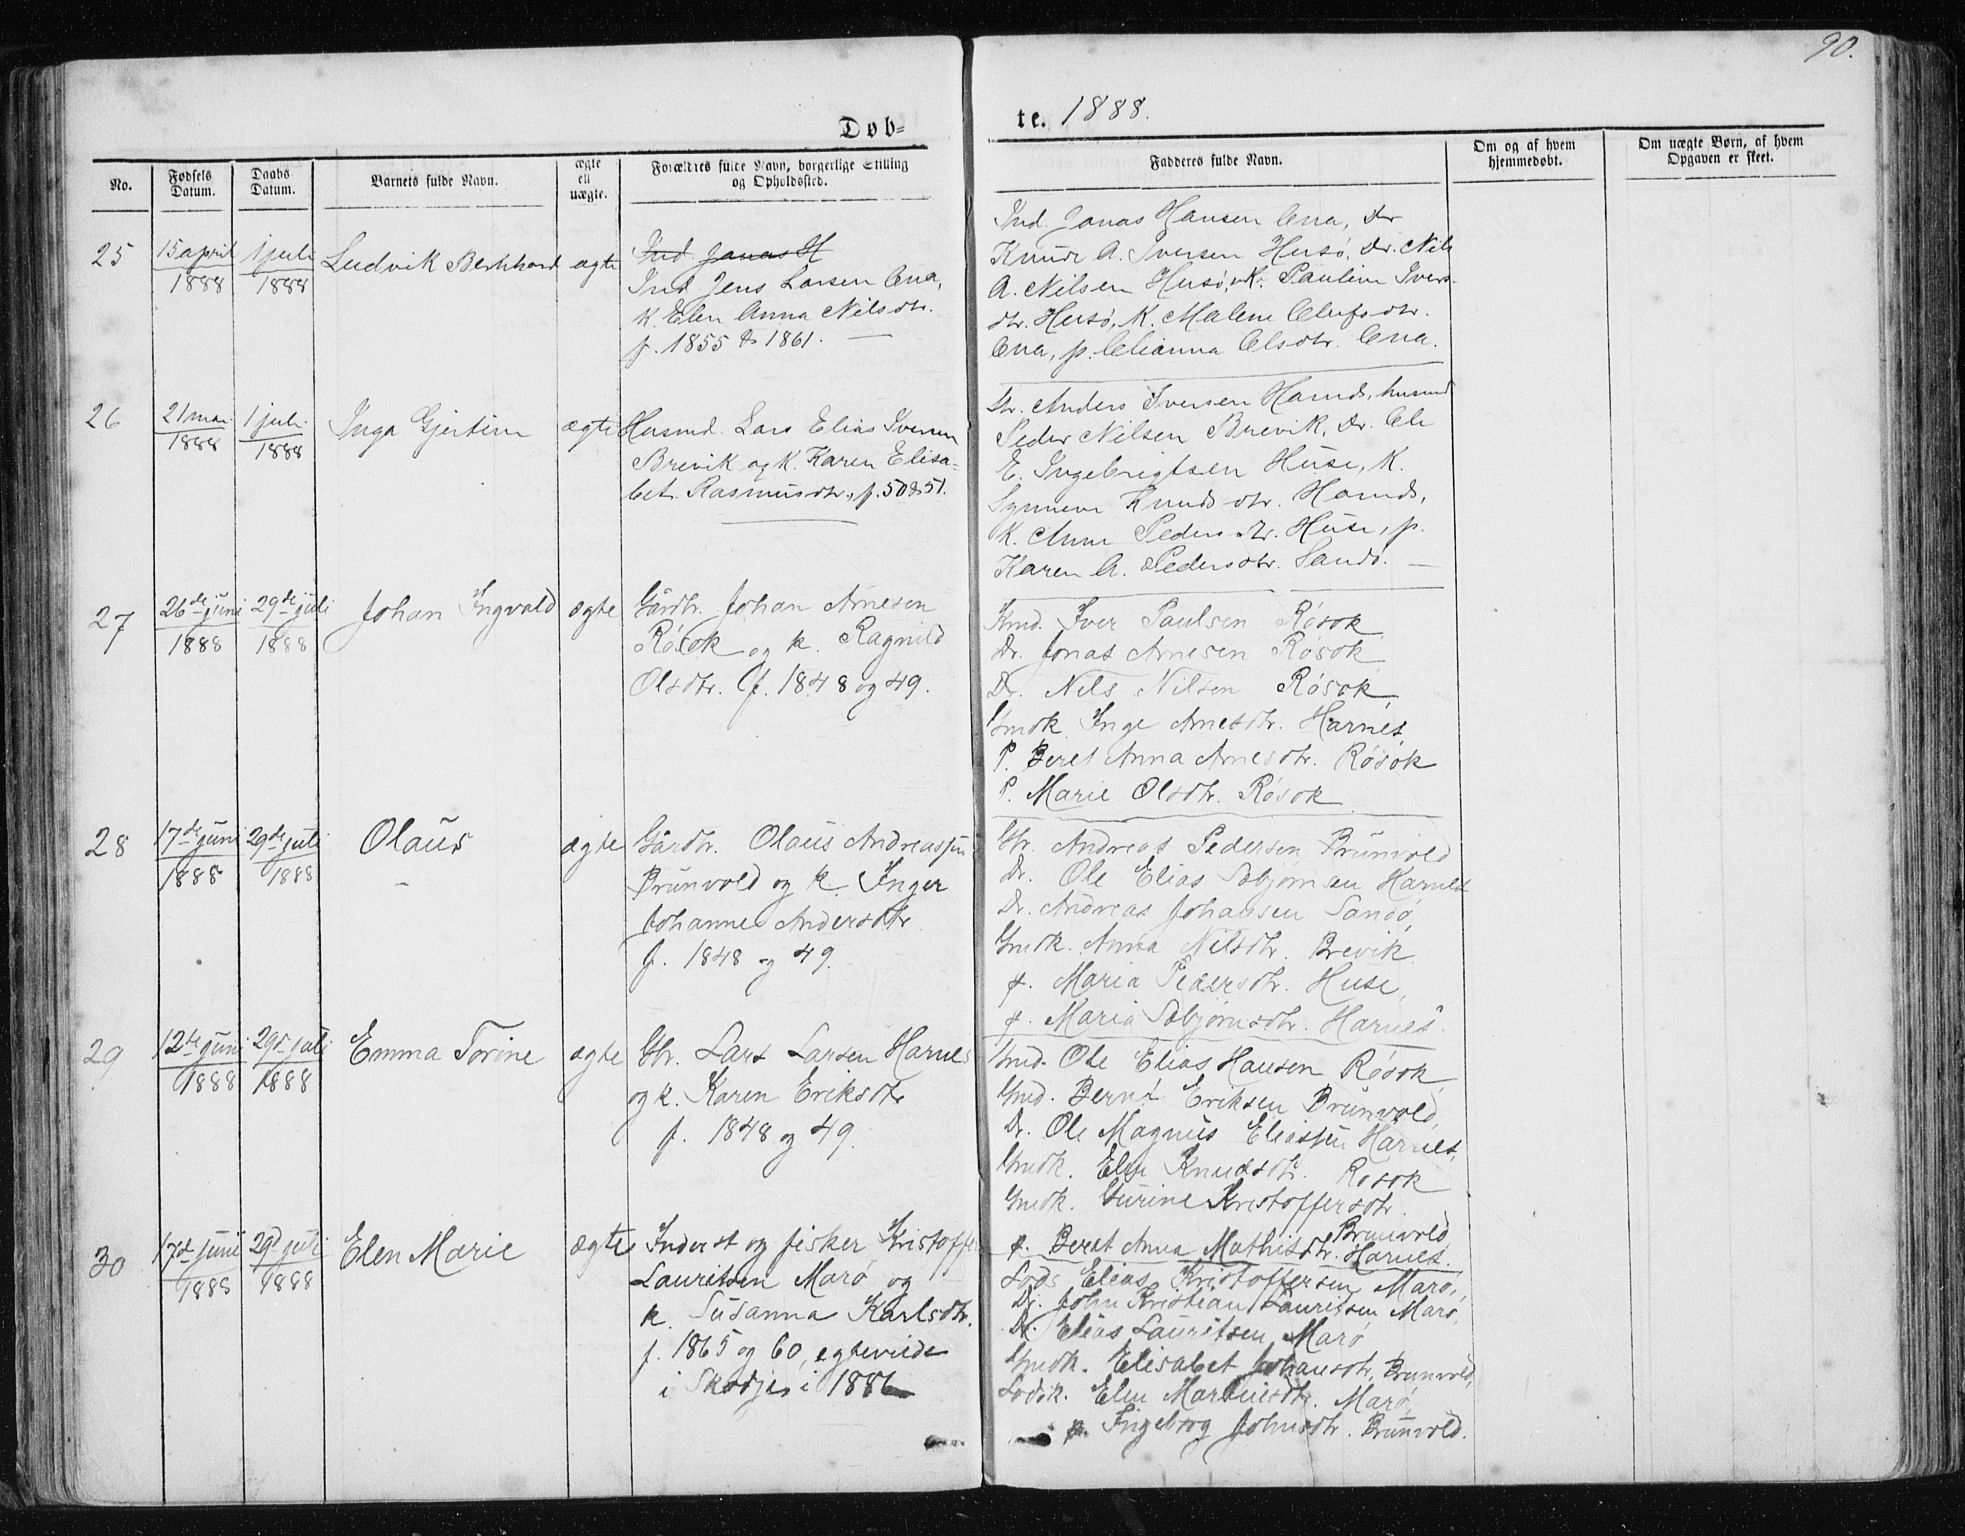 90.
Døb=
te. 1888.
No.
Fødsels Datum.
Daabs Datum.
Barnets fulde Navn.
ægte ell uægte.
Forældres fulde Navn, borgerlige Stilling og Opholdssted.
Fadderes fulde Navn.
Om og af hvem hjemmedøbt.
Om uægte Børn, af hvem Opgaven er skeet.
25
15 april 1888
1 juli 1888
Ludvik Bernhard
ægte
Ind. Jonas H
Ind. Jens Larsen Ona,
K. Elen Anna Nilsdtr.
f. 1855 & 1861. —
Ind. Jonas Hansen Ona, Dr.
Knud A. Iversen Husø, Dr. Nils
A. Nilsen Husø, K. Pauline Ivers-
dtr. Husø, K. Malene Olufsdtr.
Ona, p. Olianna Olsdtr. Ona.
26
21 mai 1888
1 juli 1888
Inga Gjertine
ægte
Husmd. Lars Elias Iversen
Brevik og K. Karen Elisa-
bet Rasmusdtr., f. 50 & 51.
Gbr. Anders Iversen Harnes, husmd
Peder Nilsen Brevik, Dr. Ole
E. Ingebrigtsen Huse, K.
Synneve Knudsdtr. Harnes,
K. Anne Pedersdtr. Huse, p.
Karen A. Pedersdtr. Sandø. —
27
26de juni 1888
29de juli 1888
Johan Ingvald
ægte
Gårdbr. Johan Arnesen
Røsok og k. Ragnild
Olsdtr. f. 1848 og 49.
Kmd. Iver Paulsen Røsok
Dr. Jonas Arnesen Røsok
Dr. Nils Nilsen Røsok,
Gmdk. Inge Arnesdtr. Harnes,
P. Beret Anna Arnesdtr. Røsok
P. Marie Olsdtr. Røsok
28
17de juni 1888
29de juli 1888
Olaus
ægte
Gårdbr. Olaus Andreassen
Brunvold og k. Inger
Johanne Andersdtr.
f. 1848 og 49.
Gbr. Andreas Pedersen Brunvold
Dr. Ole Elias Asbjørnsen Harnes
Dr. Andreas Johansen Sandø,
Gmdk. Anna Nilsdtr. Brevik.
p. Maria Pedersdtr. Huse,
p. Maria Asbjørnsdtr. Harnes.
29
12te juni 1888
29d juli 1888
Emma Torine
ægte
Gbr. Lars Larsen Harnes
og k. Karen Eriksdtr
f. 1848 og 49.
Gmd. Ole Elias Hansen Røsok,
Gmd. Bernt Eriksen Brunvold,
Dr. Ole Magnus Eliassen Harnes,
Gmdk. Elen Knudsdtr. Røsok
Gmdk. Gurine Kristoffersdtr.
Brunvold,
p. Beret Anna Mathisdtr. Harnes.
30
17d juni 1888
29d juli 1888
Elen Marie
ægte
Inderst og fisker Kristoffer
Lauritsen Marø og
k. Susanna Karlsdtr.
f. 1865 og 60, egteviede
i Skodje i 1886
Lods Elias Kristoffersen Marø,
Dr. John Kristian Lauritsen Marø,
Dr. Elias Lauritsen Marø
Gmdk. Elisabet Johansdtr. Brunvold,
Lodsk. Elen Martinsdtr. Marø,
p. Ingeborg Johnsdtr. Brunvold.